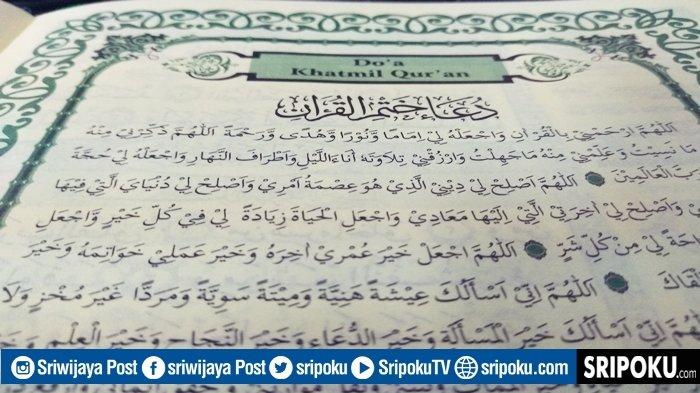 Do'a
Khatmil Qur'an
دُعَاءُ خَتْمِ الْقُرْآنِ
اَللّٰهُمَّ ارْحَمْنِيْ بِالْقُرْاٰنِ وَاجْعَلْهُ لِيْ اِمَامًا وَنُوْرًا وَهُدًى وَرَحْمَةً اَللّٰهُمَّ ذَكِّرْنِيْ مِنْهُ
مَا نَسِيْتُ وَعَلِّمْنِيْ مِنْهُ مَا جَهِلْتُ وَارْزُقْنِيْ تِلَاوَتَهُ اٰنَاءَ اللَّيْلِ وَاَطْرَافَ النَّهَارِ وَاجْعَلْهُ لِيْ حُجَّةً
رَبَّ الْعَالَمِيْنَ اَللّٰهُمَّ اَصْلِحْ لِيْ دِيْنِيْ الَّذِيْ هُوَ عِصْمَةُ اَمْرِيْ وَاَصْلِحْ لِيْ دُنْيَايَ الَّتِيْ فِيْهَا
وَاَصْلِحْ لِيْ اٰخِرَتِيْ الَّتِيْ اِلَيْهَا مَعَادِيْ وَاجْعَلِ الْحَيَاةَ زِيَادَةً لِيْ فِيْ كُلِّ خَيْرٍ وَاجْعَلِ
لِيْ مِنْ كُلِّ شَرٍّ اَللّٰهُمَّ اجْعَلْ خَيْرَ عُمْرِيْ اٰخِرَهُ وَخَيْرَ عَمَلِيْ خَوَاتِمَهُ وَخَيْرَ
اَللّٰهُمَّ اِنِّيْ اَسْأَلُكَ عِيْشَةً هَنِيَّةً وَمِيْتَةً سَوِيَّةً وَمَرَدًّا غَيْرَ مُخْزٍ وَلَا
اِنِّيْ اَسْأَلُكَ خَيْرَ الْمَسْأَلَةِ وَخَيْرَ الدُّعَاءِ وَخَيْرَ النَّجَاحِ وَخَيْرَ الْعِلْمِ وَخَيْرَ
Sriwijaya Post sriwijaya Post sripoku SripokuTV sripoku.com SRIPOKU.com